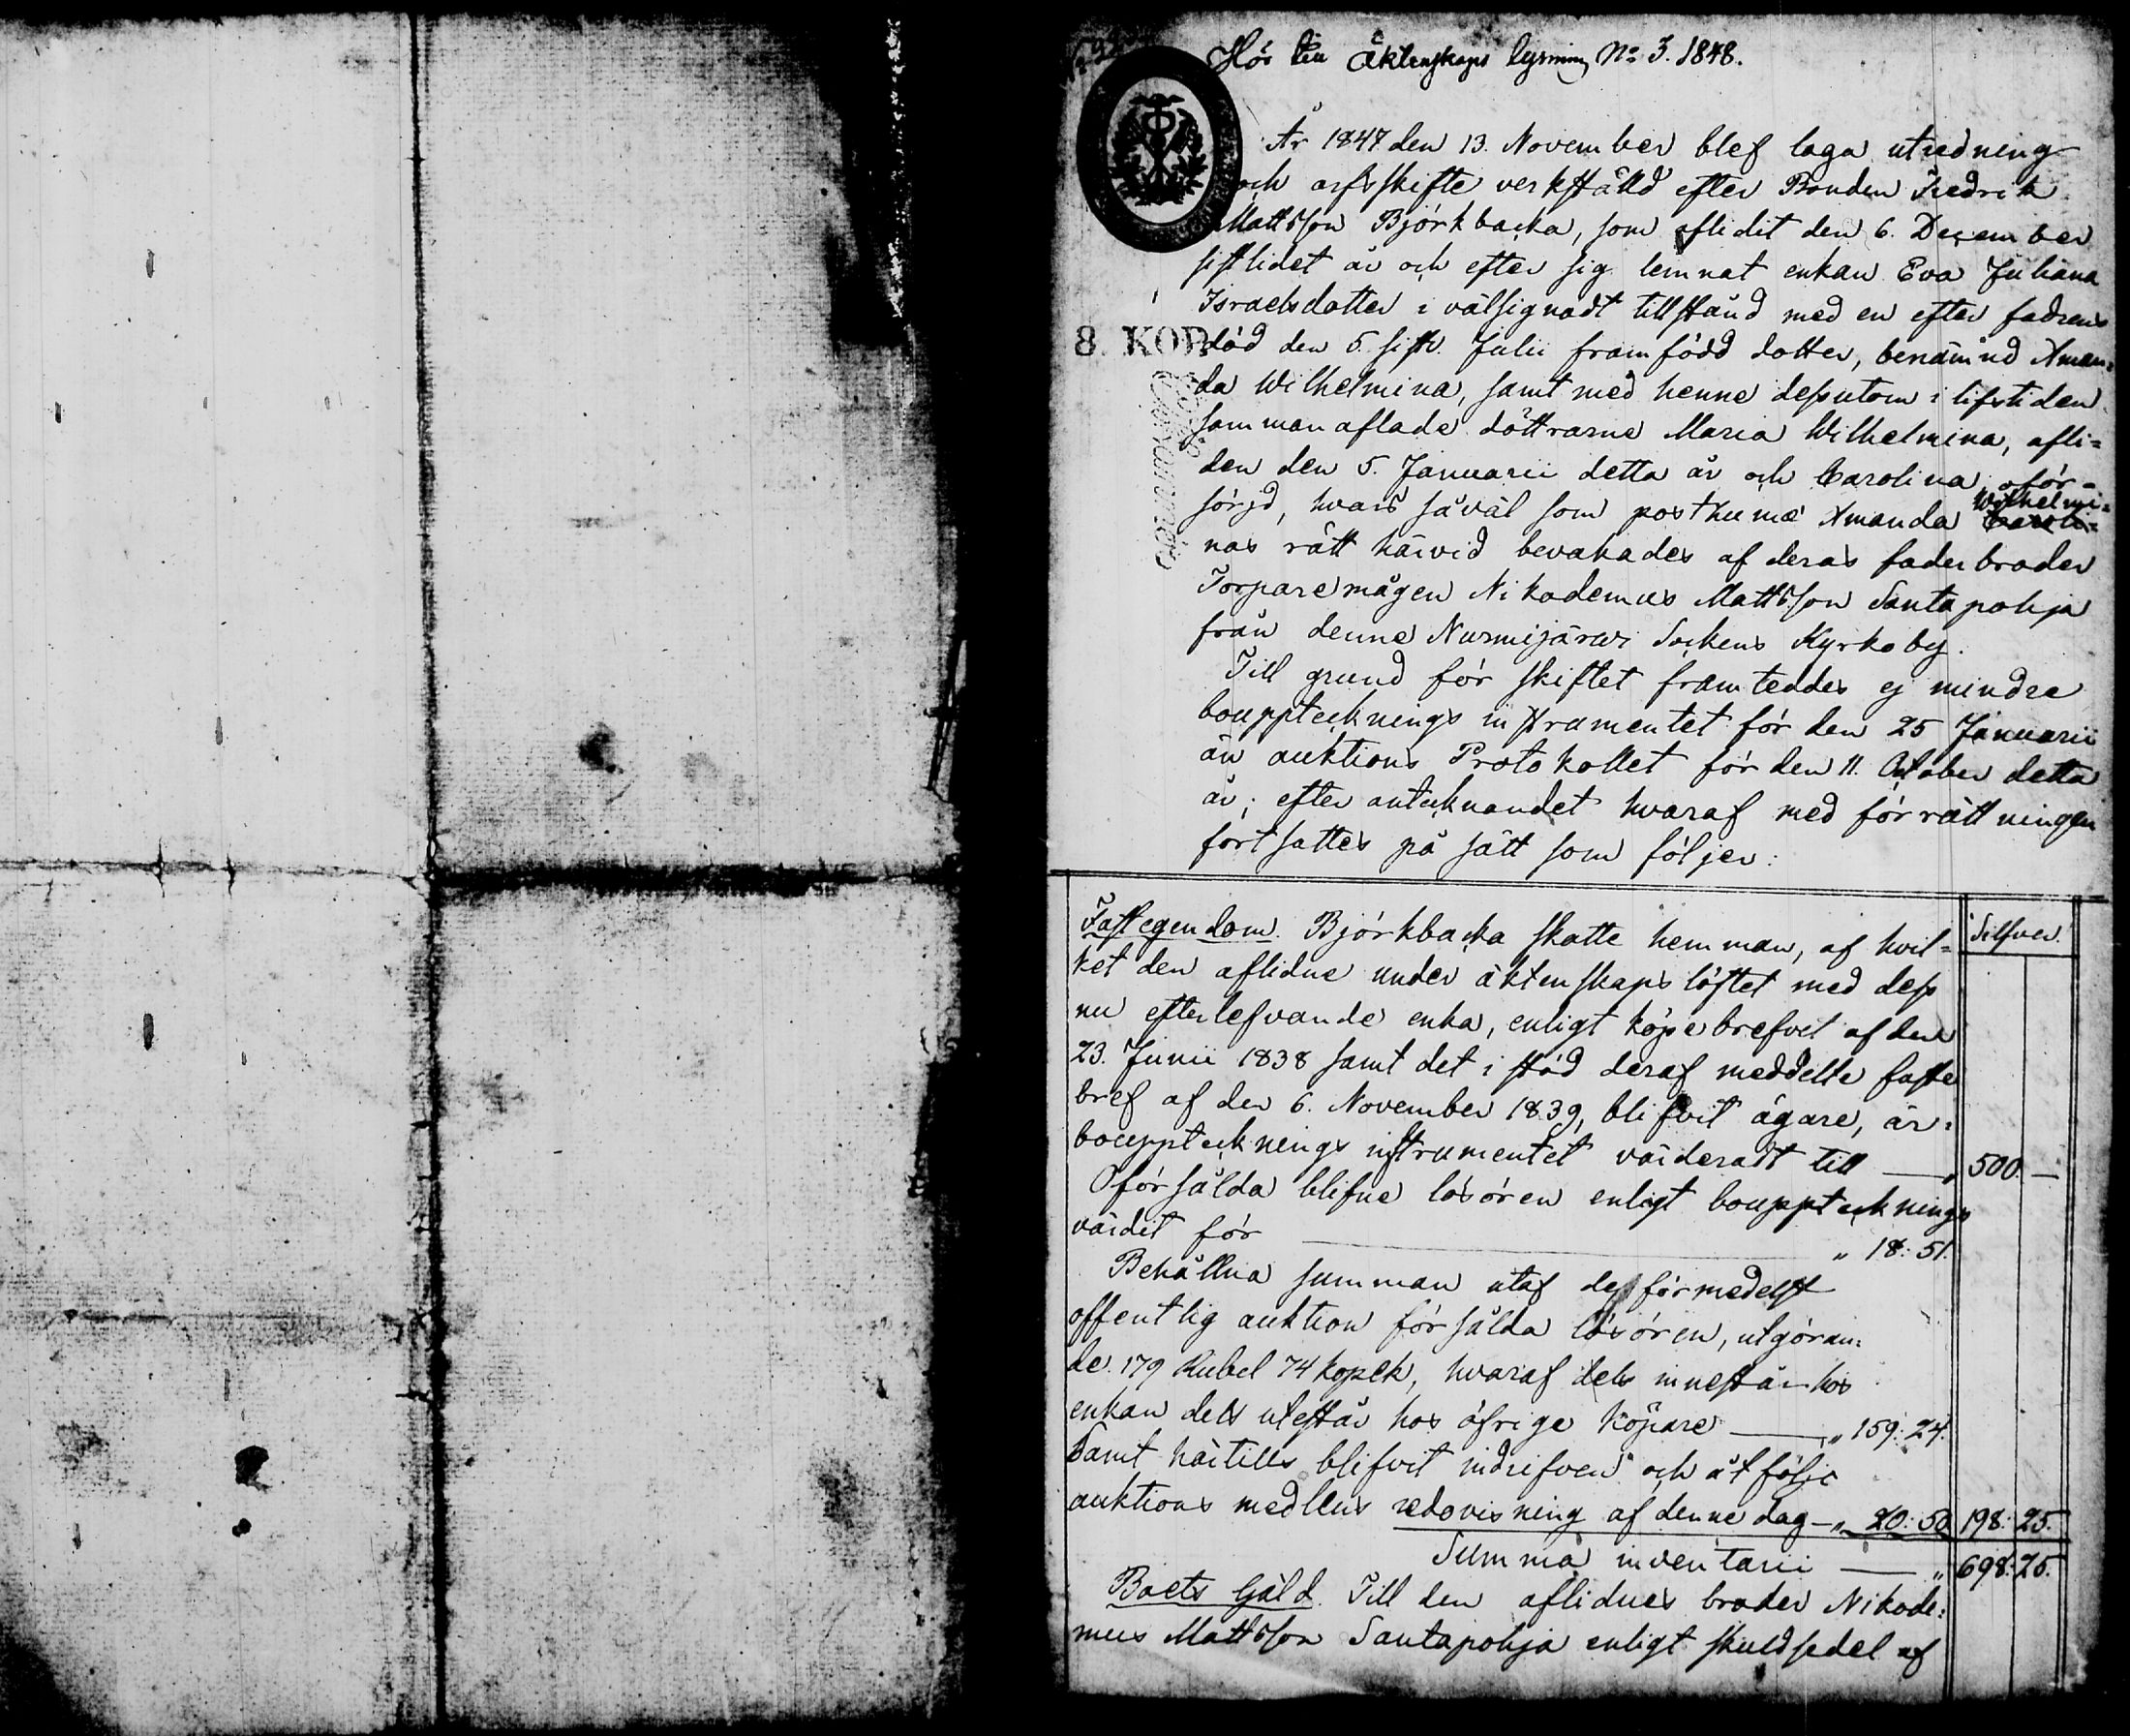 Hör till Äktenskaps lysning No 3. 1848.
År 1847 den 13. November blef laga utredning
och arfsskifte verkställd efter Bonden Fredrik
Mattsson Björkbacka, som aflidit den 6. December
sistlidet år och efter sig lemnat enkan Eva Juliana
Israelsdotter i välsignadt tillstånd med en efter fadrens
8 KOP.
död den 5. sistl. Julii framfödd dotter, benämnd Aman=
da Wilhelmina, samt med henne dessutom i lifstiden
sammanaflade döttrarne Maria Wilhelmina, afli=
den den 5. Januarii detta år och Carolina, oför=
sörjd, hvars såväl som posthumæ Amanda Wilhelmi=
nas rätt härvid bevakades af deras faderbroder
Torparemågen Nikodemus Mattsson Santapohja
från denne Nurmijärvi Sockens Kyrkoby.
Till grund för skiftet framteddes ej mindre
bouppteckningsinstrumentet för den 25 Januarii
än auktions Protokollet för den 11. October detta
år; efter antecknandet hvaraf med förrättningen
fortsattes på sätt som följer:
Silfver.
Fast egendom. Björkbacka skatte hemman, af hvil=
ket den aflidne under äktenskapslöftet med dess
nu efterlefvande enka, enligt köpebrefvet af den
23. Junii 1838 samt det i stöd deraf meddelte faste
bref af den 6. November 1839, blifvit ägare, är i
bouppteckningsinstrumentet värderadt till — „ 500. —
Oförsålda blifne lösören enligt bouppteckings
värdet för — „ 18: 51.
Behållna summan utaf dess förmedelst
offentlig auktion försålda lösören, utgöran=
de 179 Rubel 74 kopek, hvaraf dels innestår hos
enkan dels utestår hos öfrige köpare — „ 159: 24.
Samt härtills blifvit indrifven och åtföljer
auktions medlens redovisning af denne dag — „ 20: 50 198: 25.
Summa inventarii — „ 698: 25.
Boets Gäld. Till den aflidnes broder Nikode=
mus Mattsson Santapohja enligt skuldsedel af